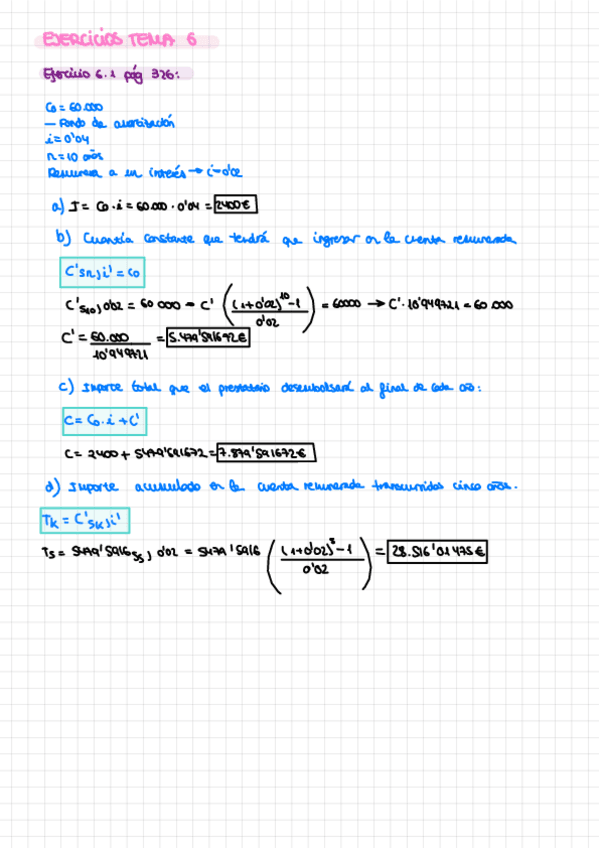 EJERCICIOS TEMA 6
Ejercicio 6.1 pág 326:
C₀ = 60.000
— Fondo de amortización
i = 0'04
n = 10 años
Remunera a un interés → i = 0'02
a) I = C₀ · i = 60.000 · 0'04 = 2400 €
b) Cuantía constante que tendrá que ingresar en la cuenta remunerada
C' s n, i' = C₀
C' s₁₀, 0'02 = 60 000 → C' ( (1+0'02)¹⁰ - 1 / 0'02 ) = 60000 → C' · 10'949721 = 60.000
C' = 60.000 / 10'949721 = 5.479'591672 €
c) Importe total que el prestatario desembolsará al final de cada año:
C = C₀ · i + C'
C = 2400 + 5479'591672 = 7.879'591672 €
d) Importe acumulado en la cuenta remunerada transcurridos cinco años.
Tₖ = C' sₖ, i'
T₅ = 5479'5916 s₅, 0'02 = 5479'5916 ( (1+0'02)⁵ - 1 / 0'02 ) = 28.516'01475 €